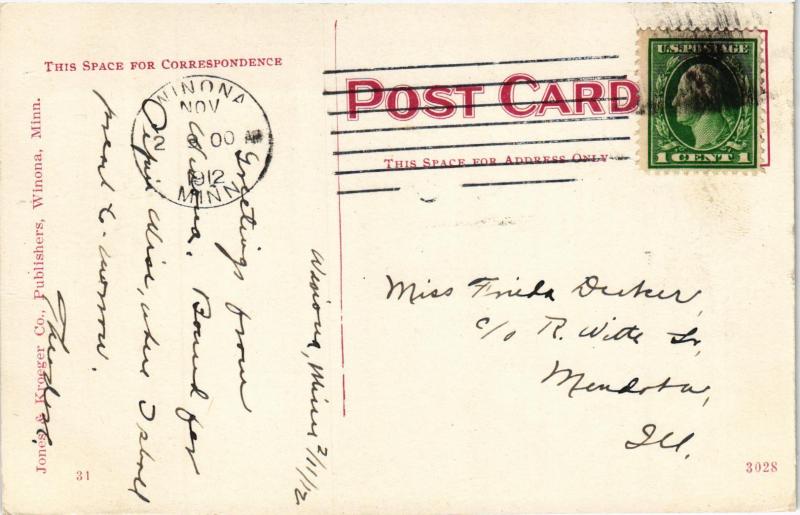 THIS SPACE FOR CORRESPONDENCE
POST CARD
THIS SPACE FOR ADDRESS ONLY
U.S. POSTAGE
1 CENT 1
WINONA
NOV
2
00
1912
MINN
Winona, Minn 2/11/12
Greetings from
Winona. Bound for
Pepin Wisc, where I shall
preach to-morrow.
Miss Frieda Decker,
c/o R. Witte Sr,
Mendota,
Ill.
Jones & Kroeger Co., Publishers, Winona, Minn.
31
3028